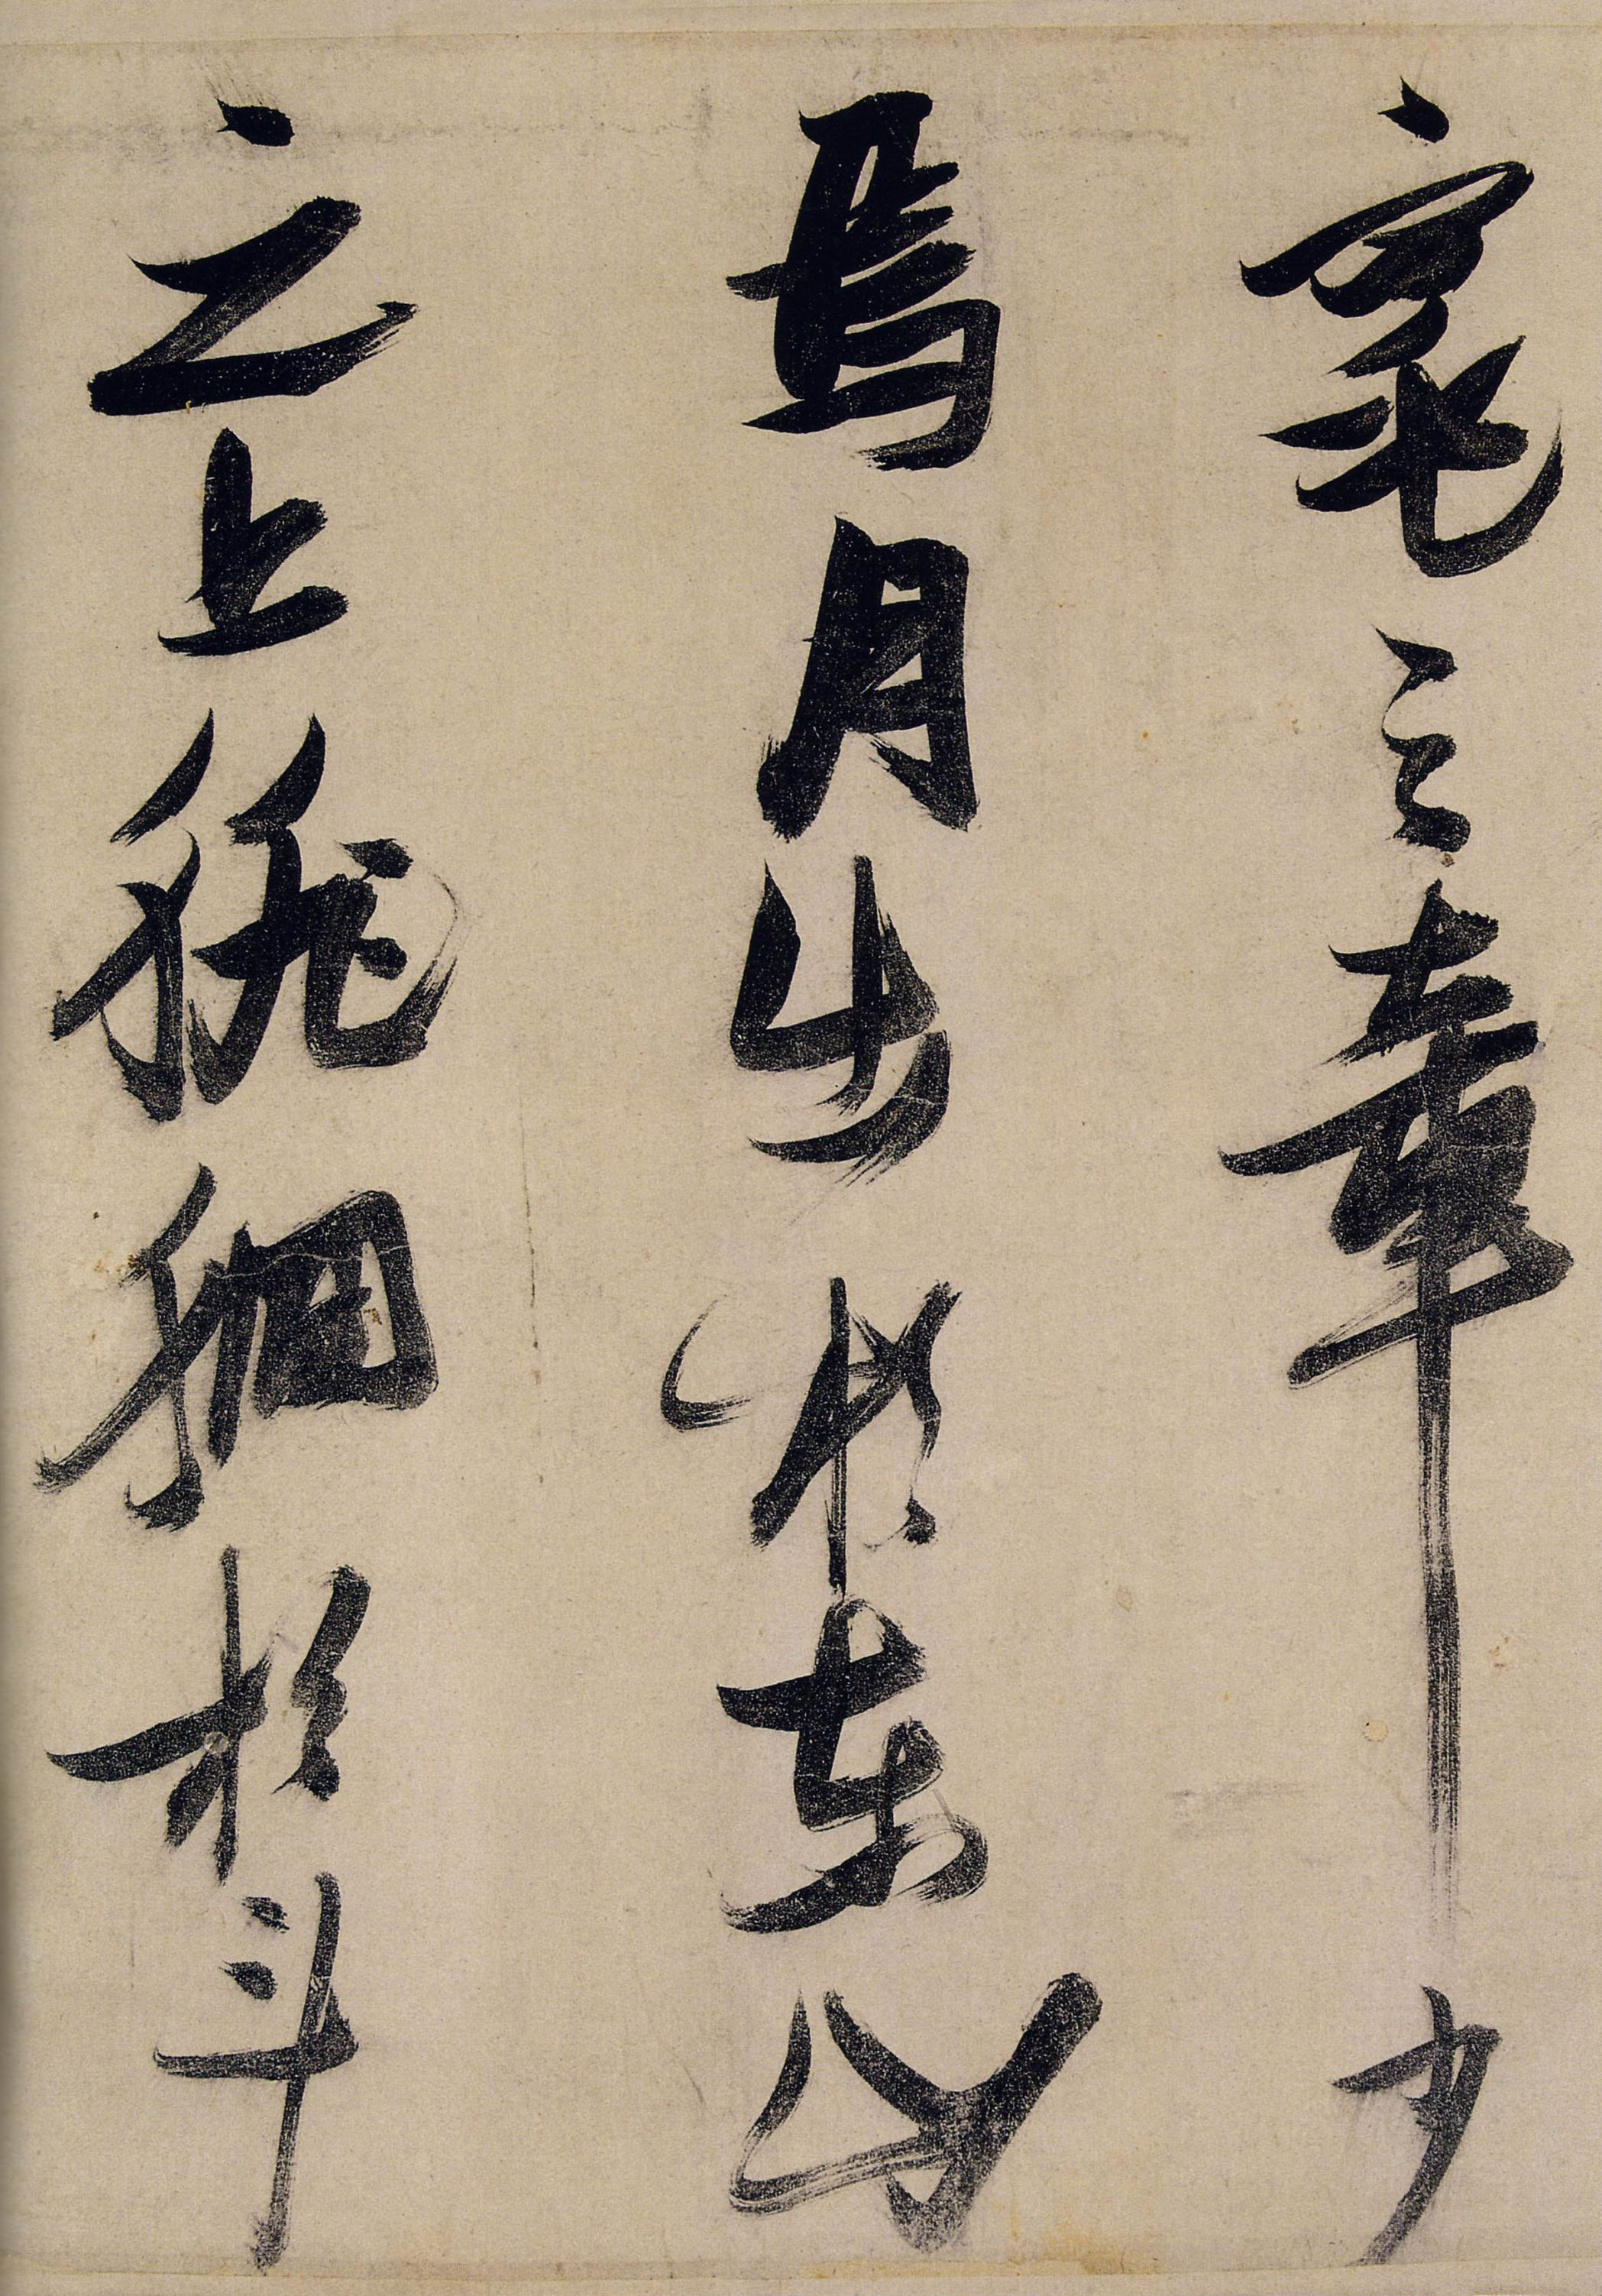 窕之章少
焉月出於東山
之上徘徊於斗